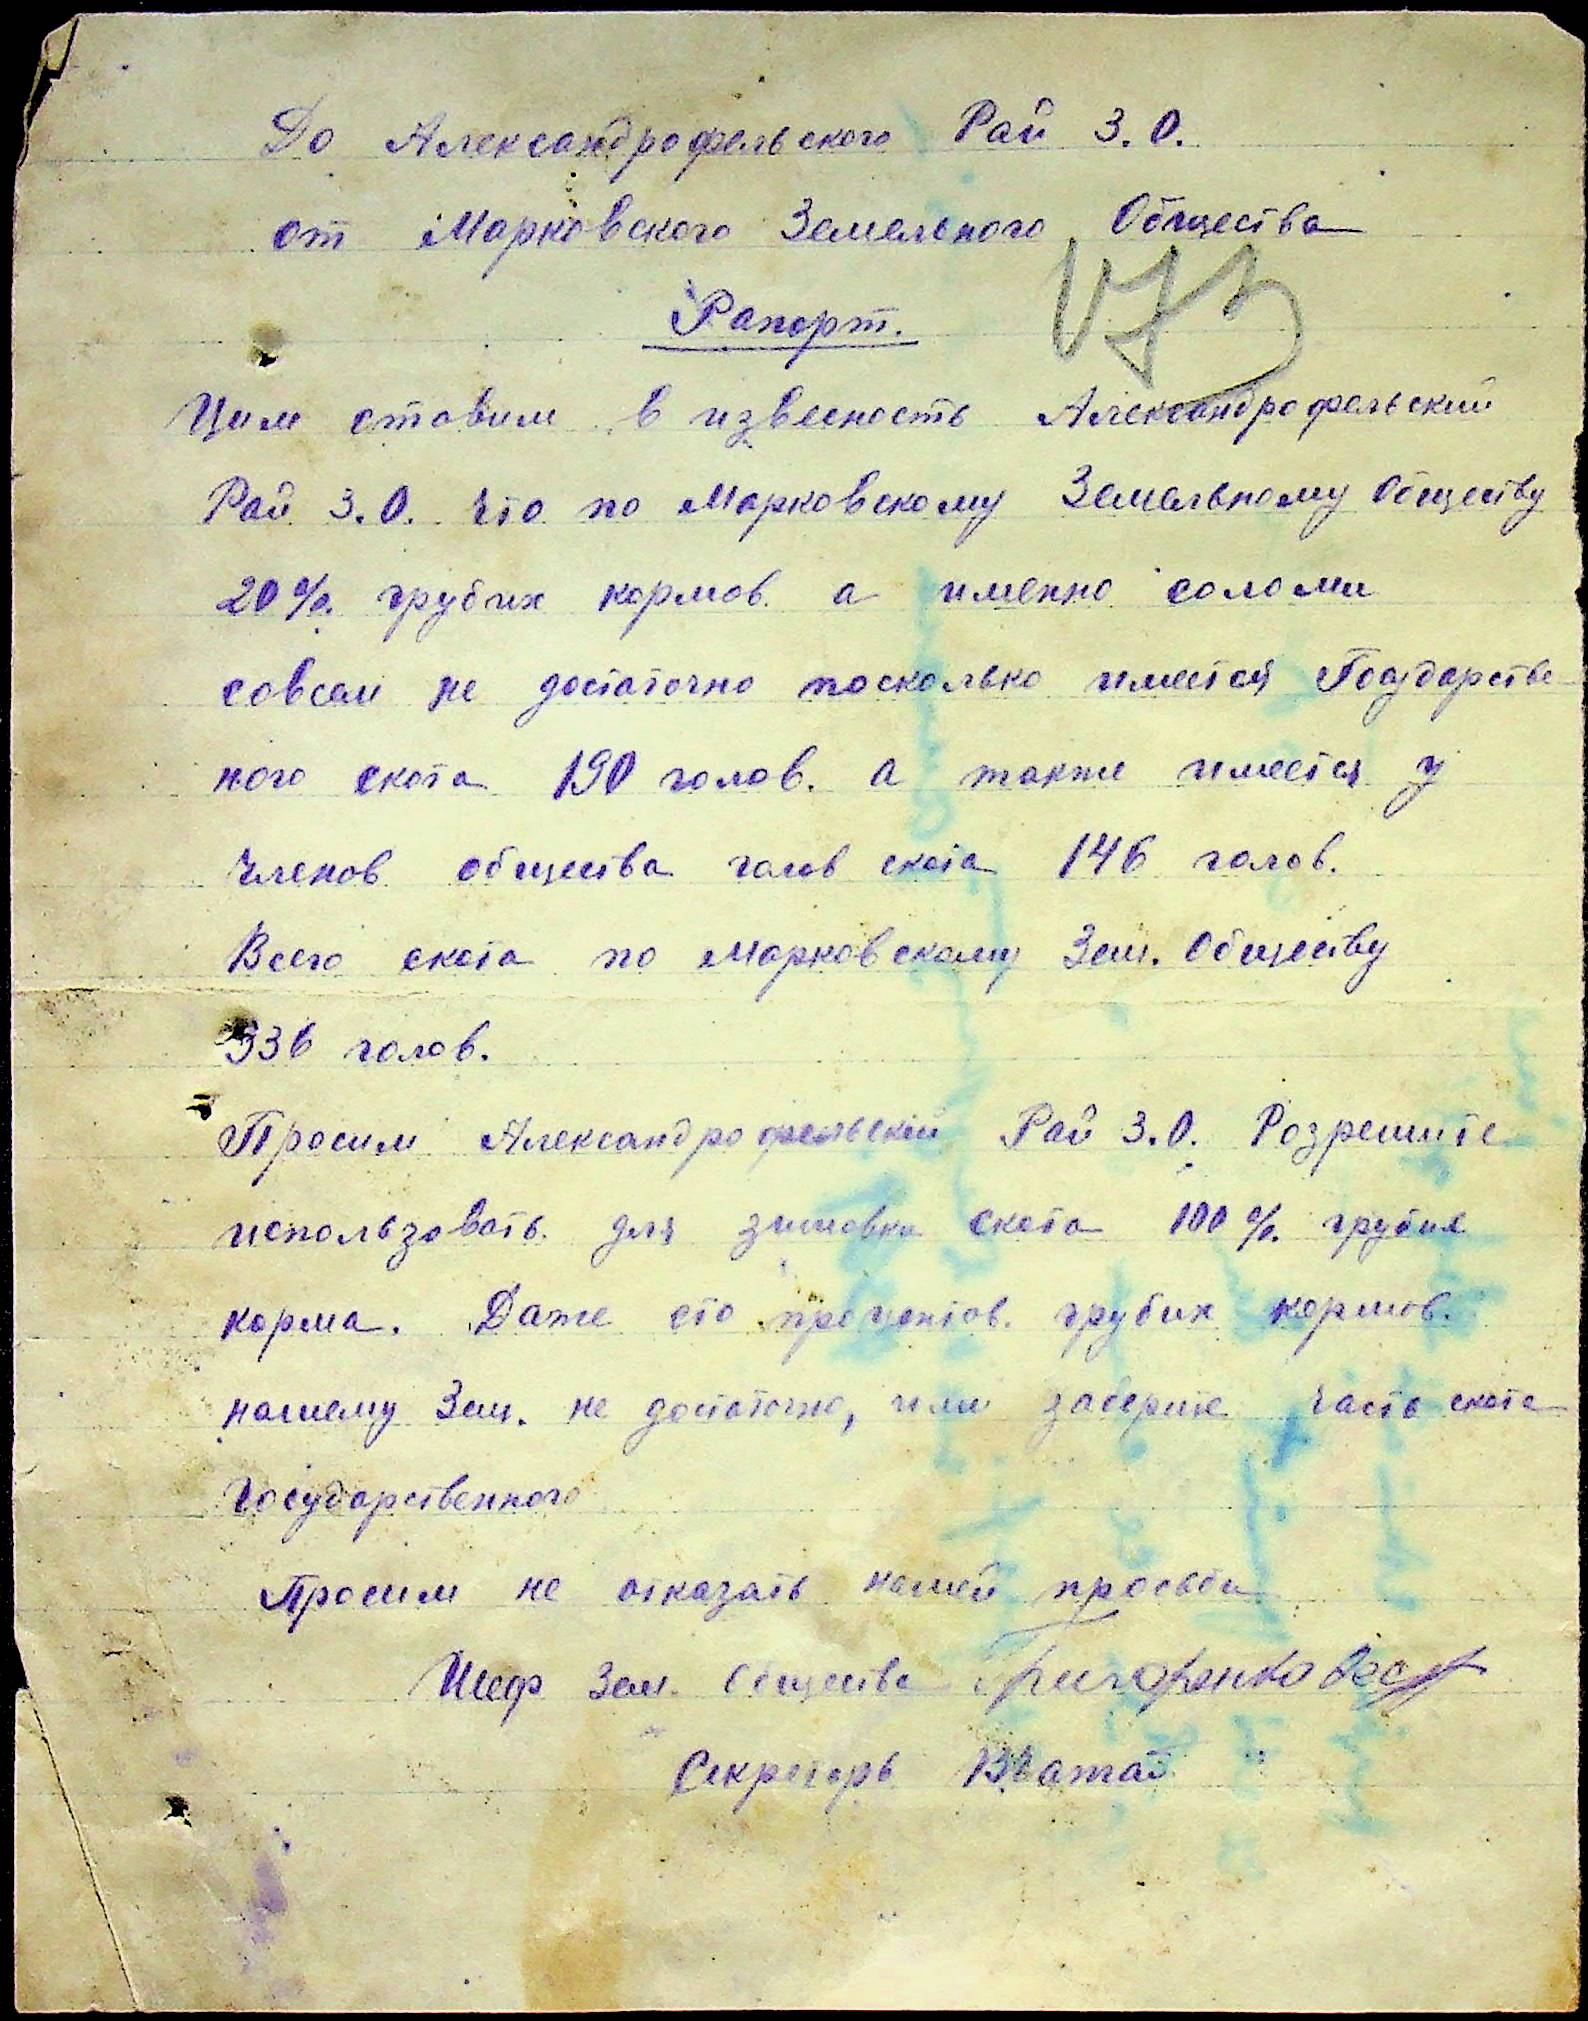 До Александрофельского Рай З.О.
от Марковского Земельного Общества
Рапорт.
Цим ставим в извесность Александрофельский
Рай З.О. что по Марковскому Земельному Обществу
20%. грубих кормов. а именно соломи
совсем не достаточно посколько имеется Государстве-
ного скота 190 голов. а также имеется у
членов общества голов скота 146 голов.
Всего скота по Марковскому Зем. Обществу
336 голов.
Просим Александрофельский Рай З.О. Розрешите
использовать для зимовки скота 100%. грубих
корма. Даже сто процентов. грубих кормов.
нашему Зем. не достаточно, или заберите часть скота
государственного
Просим не отказать нашей просьби
Шеф Зем. Общества Григоренко
Секретарь